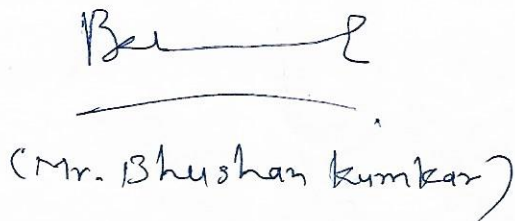 (Mr. Bhushan Kumkar)